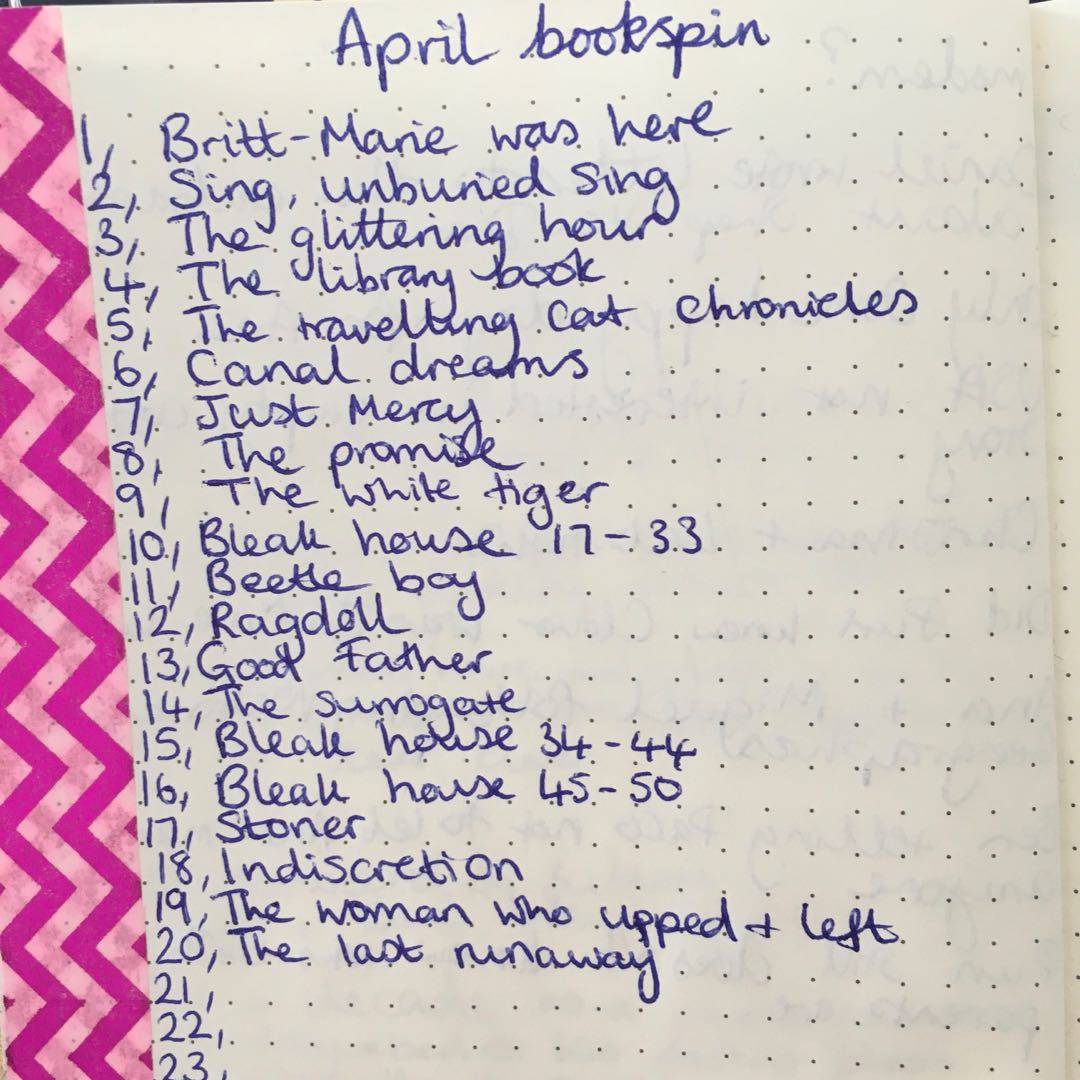 April bookspin
1, Britt-Marie was here
2, Sing, unburied Sing
3, The glittering hour
4, The library book
5, The travelling Cat chronicles
6, Canal dreams
7, Just Mercy
8, The promise
9, The white tiger
10, Bleak house 17-33
11, Beetle boy
12, Ragdoll
13, Good Father
14, The surrogate
15, Bleak house 34-44
16, Bleak house 45-50
17, Stoner
18, Indiscretion
19, The woman who upped + left
20, The last runaway
21,
22,
23,